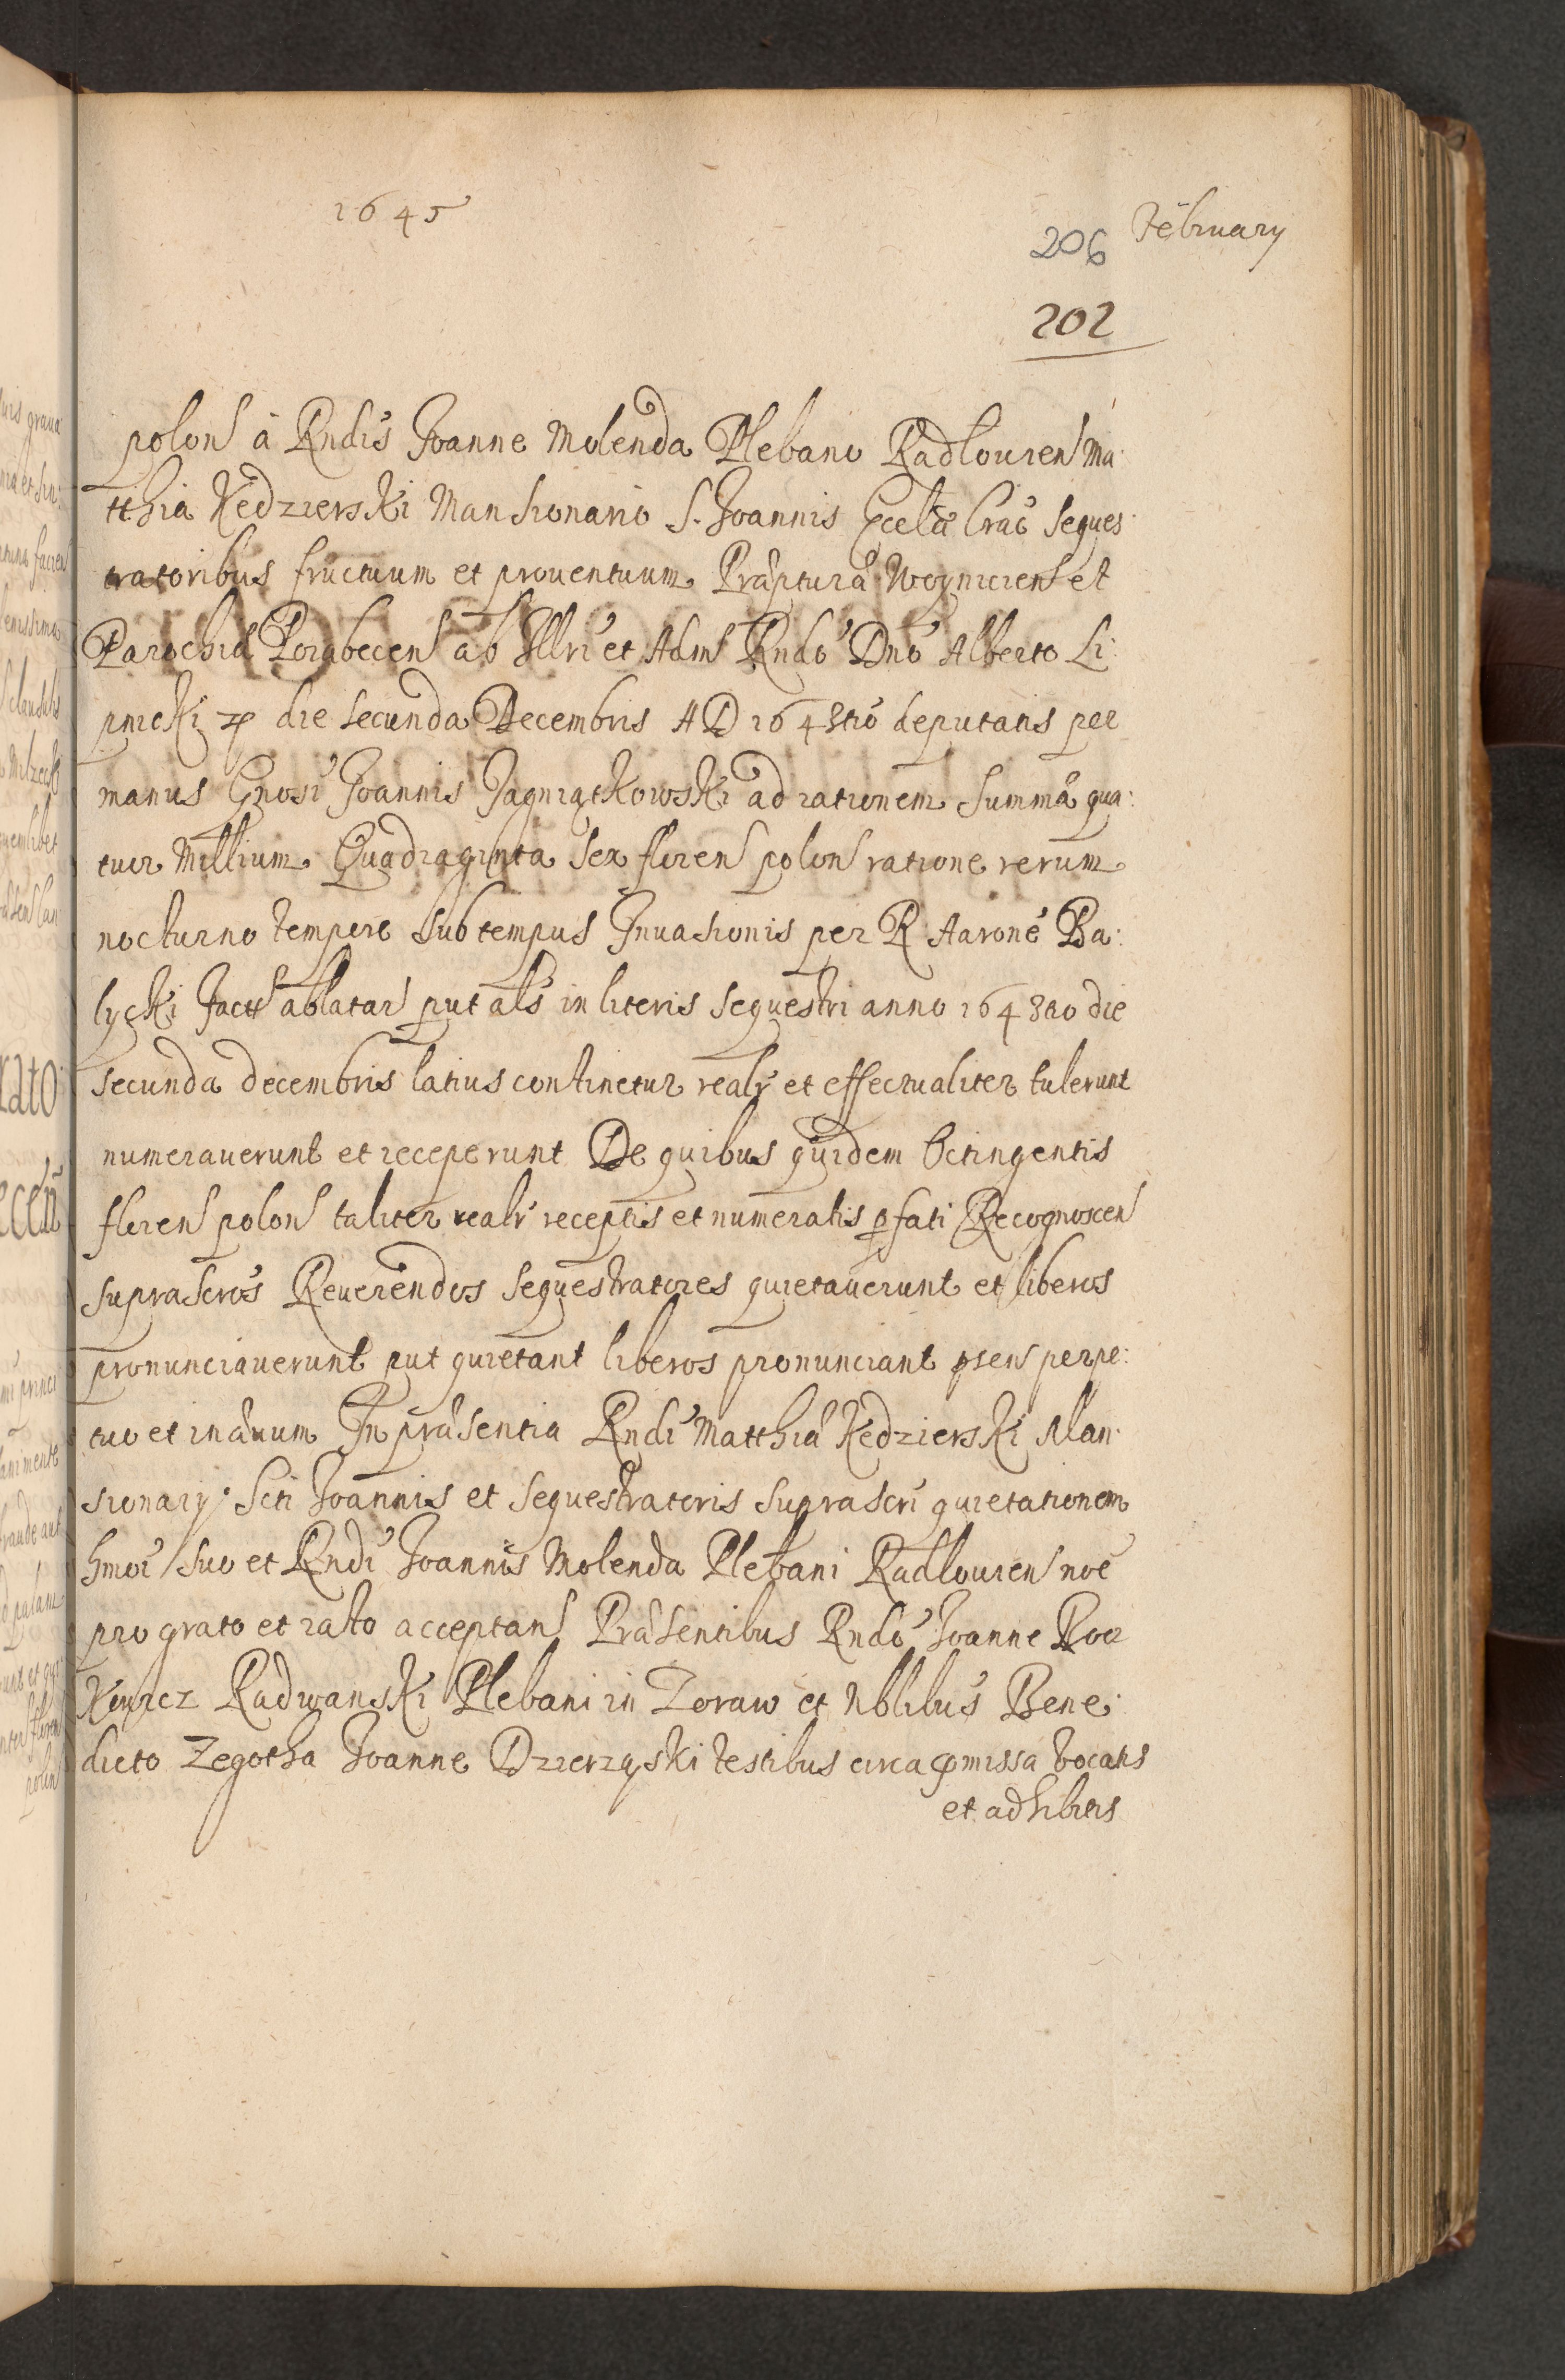 1645
February
206
202
polon à Rndis Joanne Molenda Plebano Radlouien Ma:
tthia Kędzierski Mansionario S. Joannis Eccliæ Crac Seques:
tratoribus fructuum et prouentuum Præpturæ Woyniciens et
Parochiæ Porąbecen ab Illri et Adm Rndo Dno Alberto Li:
pnicki die secunda Decembris AD 1643tio deputatis per
manus Gnosi Joannis Jagniątkowski ad rationem Summæ qua:
tuor Millium Quadraginta Sex floren polon ratione rerum
nocturno tempore sub tempus Inuasionis per R Aarone Ba:
lycki ablatar put als in literis Sequestri anno 1643tio die
secunda decembris latius continetur realr et effectualiter tulerunt
numerauerunt et receperunt De quibus quidem Octingentis
floren polon taliter realr receptis et numeratis pfati Recognoscen
suprascros Reuerendos Sequestratores quietauerunt et liberos
pronunciauerunt put quietant liberos pronunciant psen perpe:
tuo et in æuum In præsentia Rndi Matthiæ Kędzierski Man:
sionarij Scti Joannis et Sequestratoris suprascri quietationem
hmoi suo et Rndi Joannis Molenda Plebani Radlouien noe
pro grato et rato acceptan Præsentibus Rndo Joanne
Radwanski Plebani in Zoraw et Nblibus Bene:
dicto Zegotha Joanne Dzierzęski testibus circa pmissa vocatis
et adhibitis